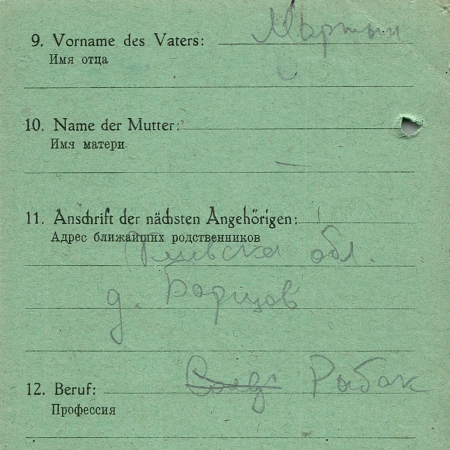 9. Vorname des Vaters: Мартын
Имя отца
10. Name der Mutter:
Имя матери
11. Anschrift der nächsten Angehörigen:
Адрес ближайших родственников
обл.
д. Борщов
12. Beruf: Рыбак
Профессия